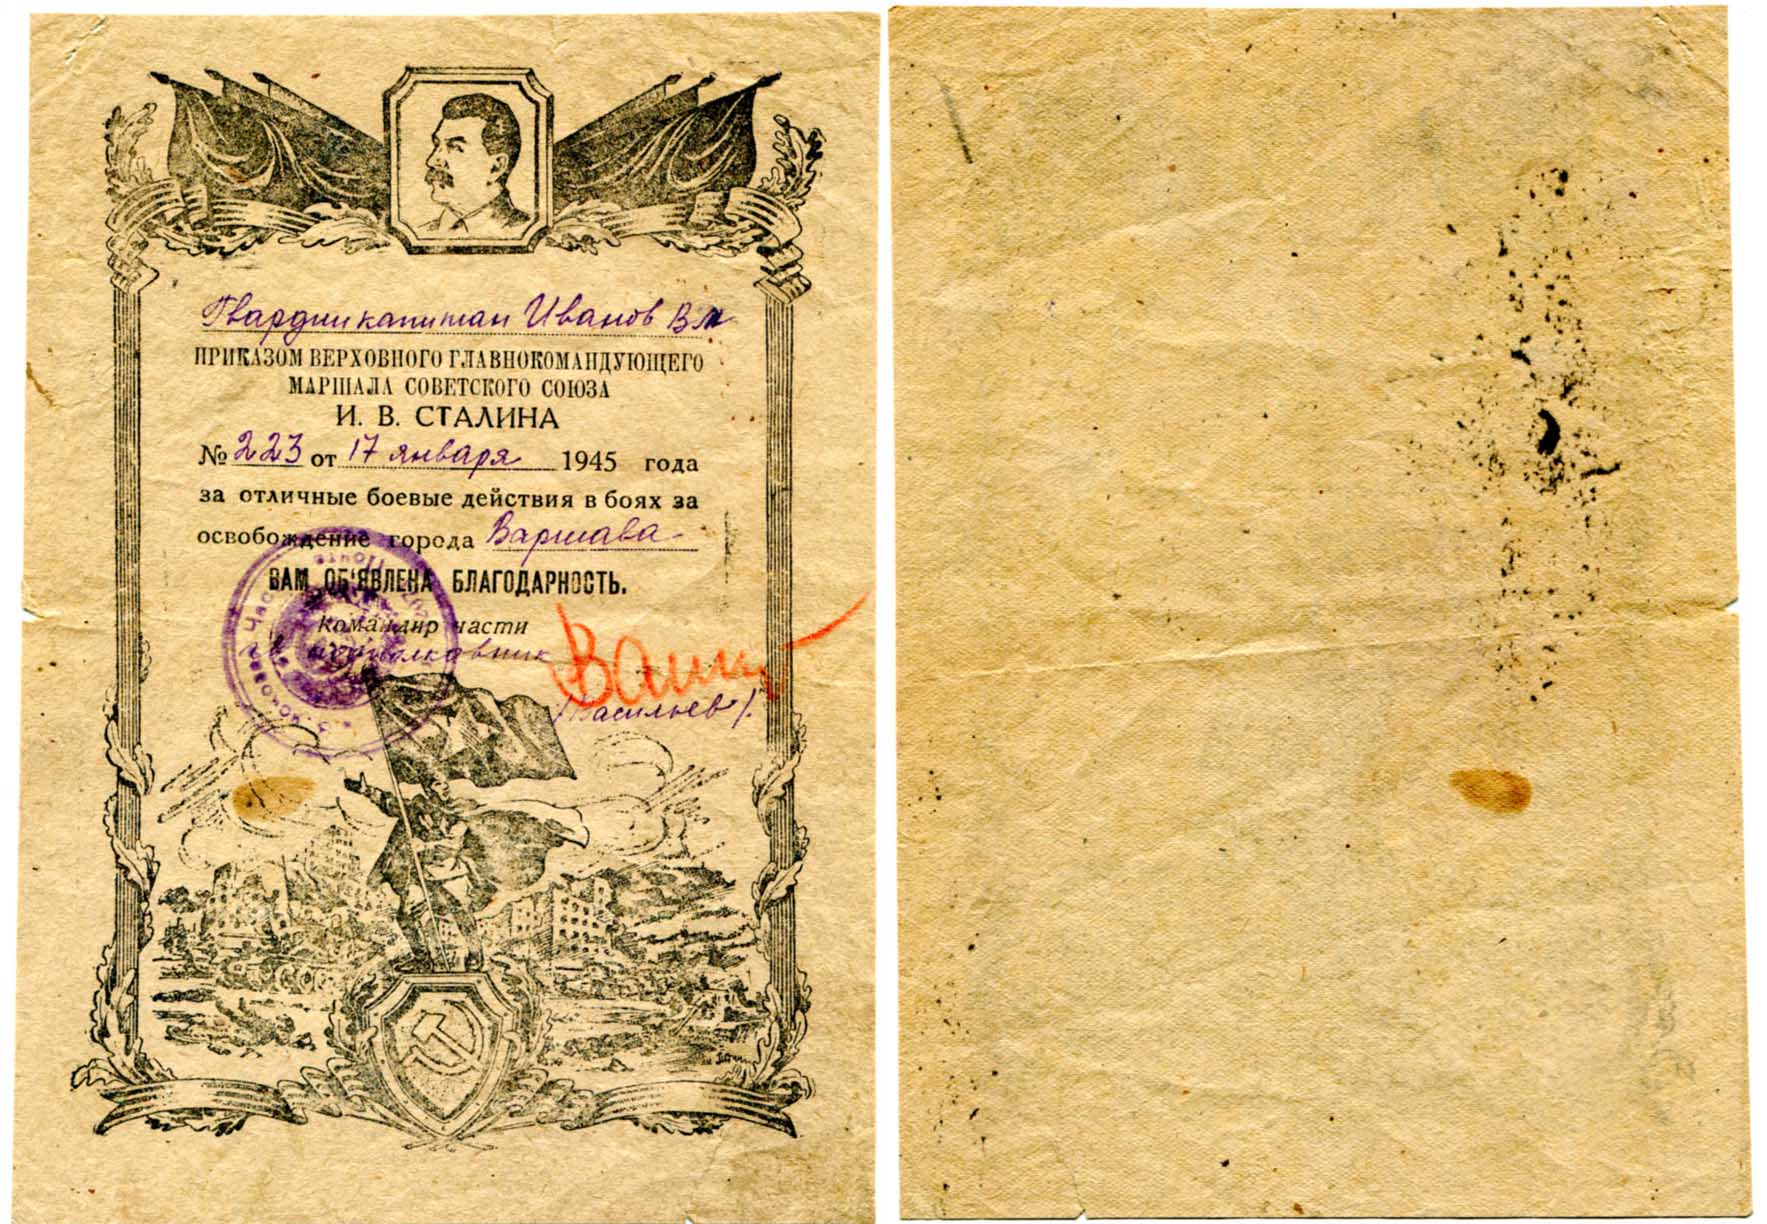 Гвардии капитан Иванов В М
ПРИКАЗОМ ВЕРХОВНОГО ГЛАВНОКОМАНДУЮЩЕГО
МАРШАЛА СОВЕТСКОГО СОЮЗА
И. В. СТАЛИНА
№ 223 от 17 января 1945 года
за отличные боевые действия в боях за
освобождение города Варшава
ВАМ ОБ'ЯВЛЕНА БЛАГОДАРНОСТЬ.
Командир части
гв подполковник
/Васильев/.